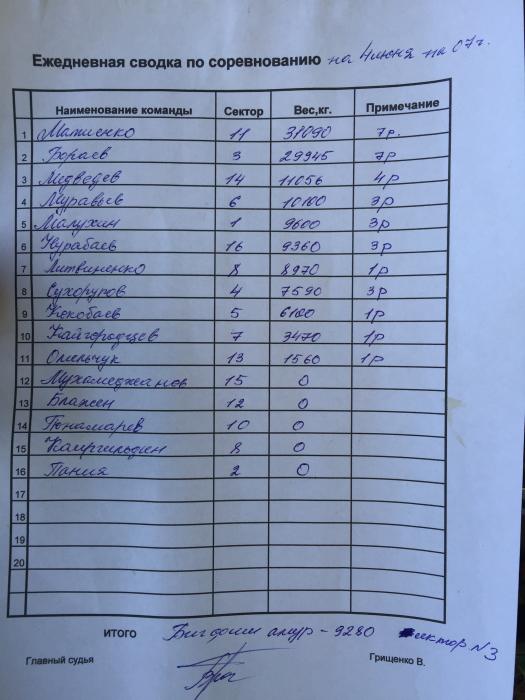 Ежедневная сводка по соревнованию на 4 июня на 07 г.
Наименование команды Сектор Вес,кг. Примечание
1 Матиенко 11 31090 7р.
2 Бораев 3 29945 7р
3 Медведев 14 11056 4р
4 Муравьев 6 10100 3р
5 Малухин 1 9600 3р
6 Нурабаев 16 9360 3р
7 Литвиненко 8 8970 1р
8 Сухоруков 4 7590 3р
9 Кекобаев 5 6100 1р
10 Кайгородцев 7 3470 1р
11 Омельчук 13 1560 1р
12 Мухамеджанов 15 0
13 Блажен 12 0
14 Понамарев 10 0
15 Каиргильдин 8 0
16 Пания 2 0
17
18
19
20
ИТОГО Бигфиш амур - 9280 сектор N3
Главный судья Грищенко В.